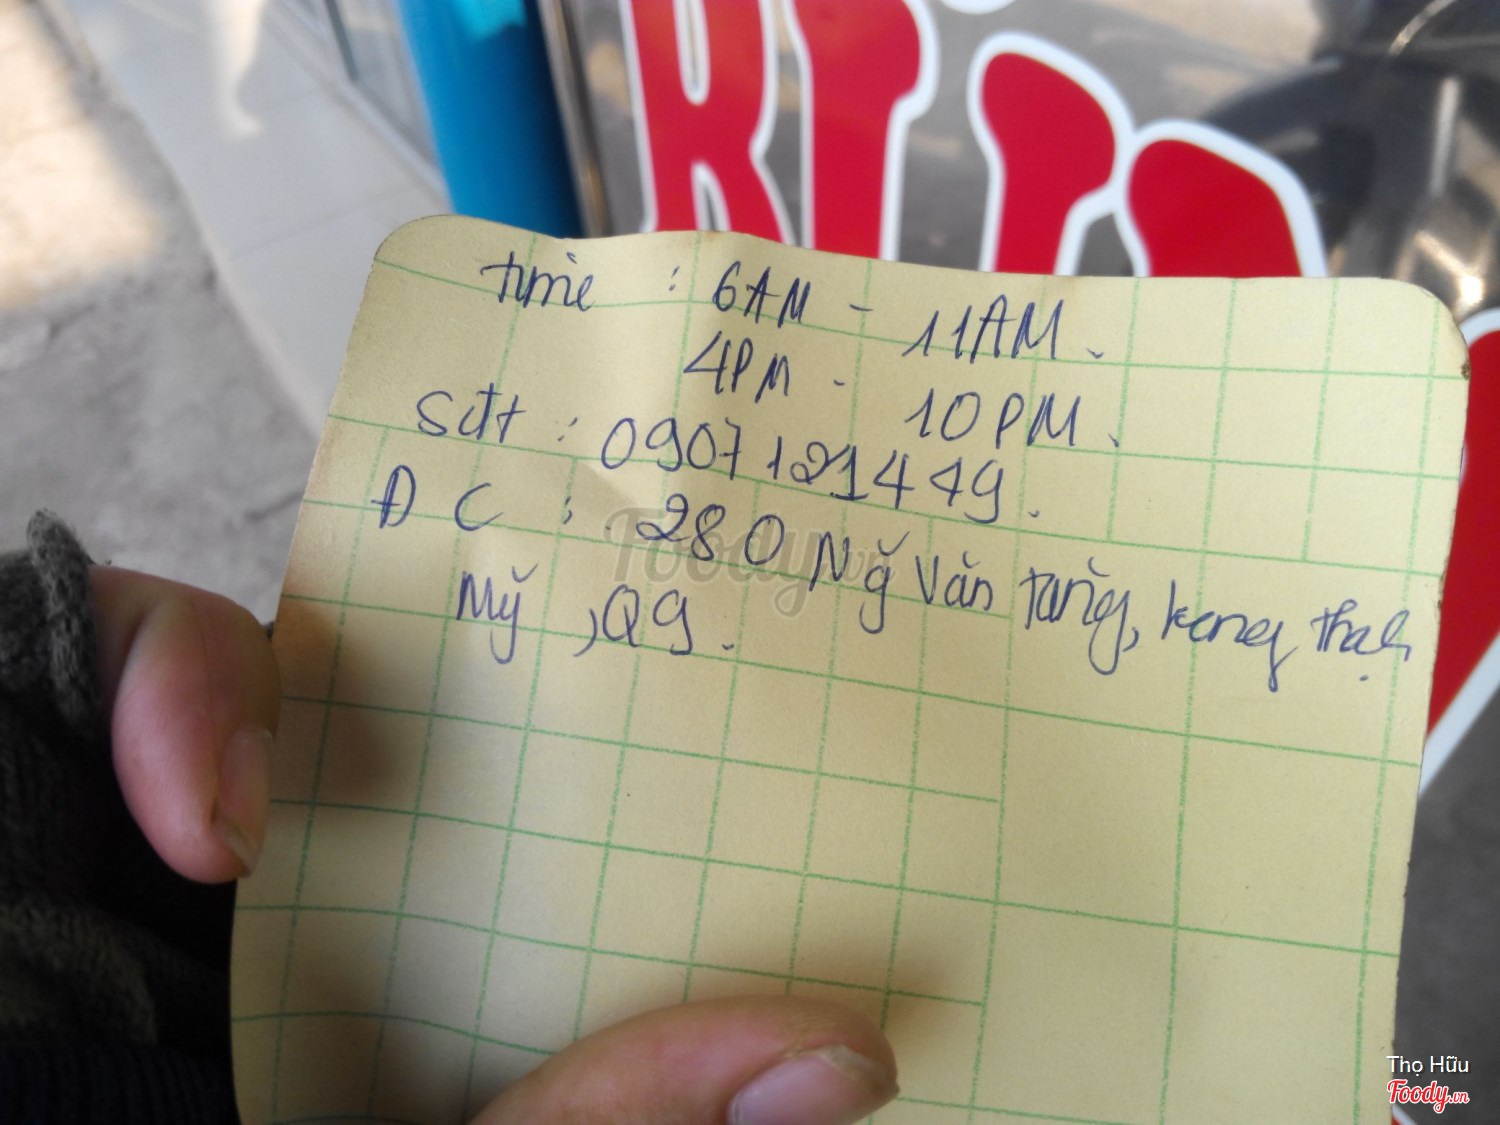 time : 6AM - 11AM.
4PM - 10PM.
Sđt : 0907121449.
ĐC : 280 Ng̃ Văn Tăng, Long Thạnh
Mỹ, Q9.
Foody.vn
Thọ Hữu
Foody.vn